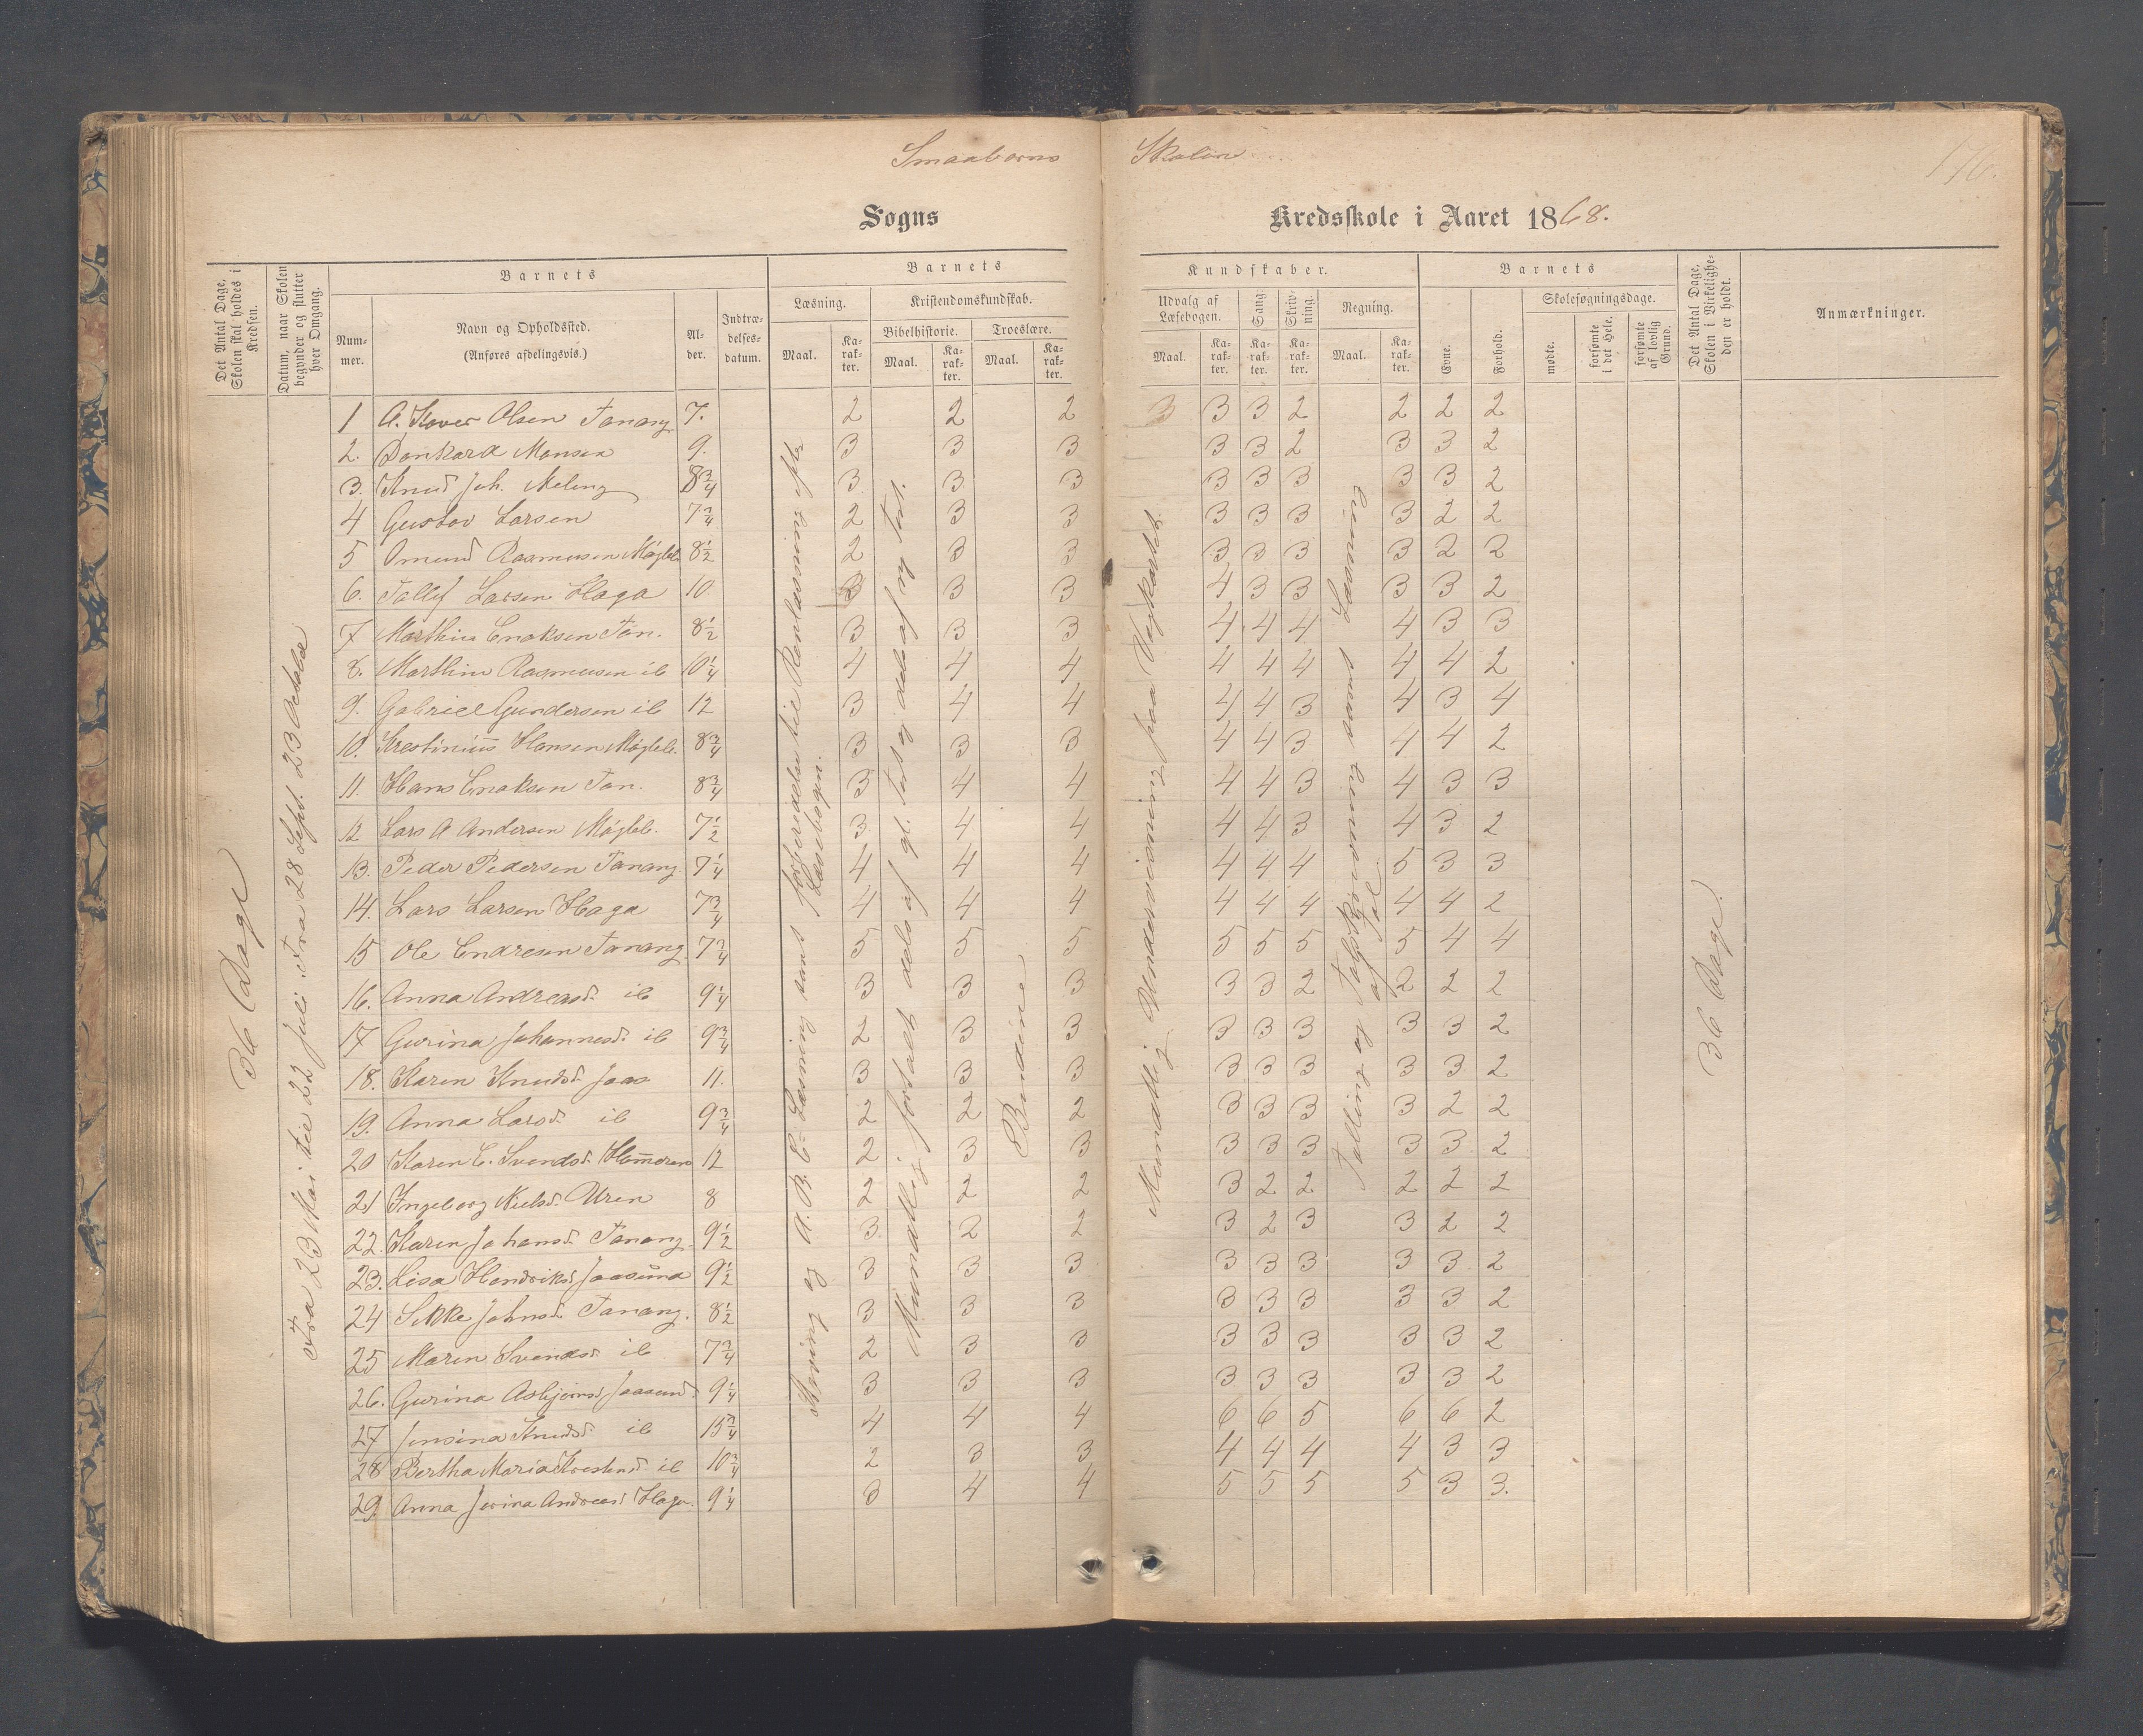 Smaabørns Skolen
176.
Sogns Kredsskole i Aaret 1868.
Det Antal Dage, Skolen skal holdes i Kredsen.
Datum, naar Skolen begynder og slutter hver Omgang.
Barnets
Nummer.
Navn og Opholdssted.
(Anføres afdelingsvis.)
Alder.
Indtrædelsesdatum.
Barnets
Læsning.
Maal.
Karakter.
Kristendomskundskab.
Bibelhistorie.
Maal.
Karakter.
Troeslære.
Maal.
Karakter.
Kundskaber.
Udvalg af Læsebogen.
Maal.
Karakter.
Sang.
Karakter.
Skrivning.
Karakter.
Regning.
Maal.
Karakter.
Barnets
Evne.
Forhold.
Skolesøgningsdage.
mødte.
forsømte i det Hele.
forsømte af lovlig Grund.
Det Antal Dage, Skolen i Virkeligheden er holdt.
Anmærkninger.
36 Dage
Fra 23 Mai til 22 Juli. Fra 28 Sept. 23 Octobr
Staving og A.B.C. Læsning samt
Læsebogen.
Mundtlig fortalt dels af gl. Test og dels af ny Test.
Mundtlig Underviisning paa Vægkartet.
Tælling og Talskrivning samt Sammenl.
af Tal
36 Dage.
1 Olsen Tanang 7. 2 2 2 3 3 3 2 2 2 2
2. Monsen 9. 3 3 3 3 3 2 3 3 2
3. Knud Joh. Meling 8 3/4 3 3 3 3 3 3 3 3 2
4 Gustav Larsen 7 3/4 2 3 3 3 3 3 3 2 2
5 Omund Rasmusen Møgleb. 8 1/2 2 3 3 3 3 3 3 2 2
6. Tollef Larsen Haga 10 3 3 3 4 3 3 3 3 2
7 Marthin Enoksen Tan. 8 1/2 3 3 3 4 4 4 4 3 3
8. Marthin Rasmusen ib 10 1/4 4 4 4 4 4 4 4 4 2
9. Gabriel Gundersen ib 12 3 4 4 4 4 3 4 3 4
10. Krestinius Hansen Møgleb. 8 3/4 3 3 3 4 4 3 4 4 2
11. Hans Enoksen Tan. 8 3/4 3 4 4 4 4 3 4 3 3
12 Lars A Andersen Møgleb. 7 1/2 3 4 4 4 4 3 4 3 2
13. Peder Pedersen Tanang. 7 1/4 4 4 4 4 4 4 5 3 3
14. Lars Larsen Haga 7 3/4 4 4 4 4 4 4 4 4 2
15 Ole Endresen Tanang 7 3/4 5 5 5 5 5 5 5 4 4
16. Anna Andreasd. ib 9 1/4 3 3 3 3 3 2 2 2 2
17 Gurina Johannesd. ib 9 3/4 2 3 3 3 3 3 3 3 2
18. Karen Knudsd. Jaas 11. 3 3 3 3 3 3 3 3 2
19. Anna Larsd. ib 9 3/4 2 2 2 3 3 3 3 2 2
20 Karen E. Svendsd. 12 2 3 3 3 3 3 3 3 2
21 Ingeborg Nielsd. Uren 8 2 2 2 3 2 2 2 2 2
22. Karen Johansd. Tanang. 9 1/2 3 2 2 3 2 3 3 2 2
23. Lisa Hendriksd. Jaasund 9 1/2 3 3 3 3 3 3 3 3 2
24 Sikke Johnsd. Tanang. 8 1/2 3 3 3 3 3 3 3 3 2
25 Maren Svendsd. ib 7 3/4 2 3 3 3 3 3 3 3 2
26. Gurina Asbjørnsd. Jaasund 9 1/4 3 3 3 3 3 3 3 3 2
27 Jensina Knudsd. ib 15 3/4 4 4 4 6 6 5 6 6 2
28 Bertha Maria Krestensd. ib 10 3/4 2 3 3 4 4 4 4 3 3
29. Anna Jorina Andreasd. Haga. 9 1/4 3 4 4 5 5 5 5 3 3.